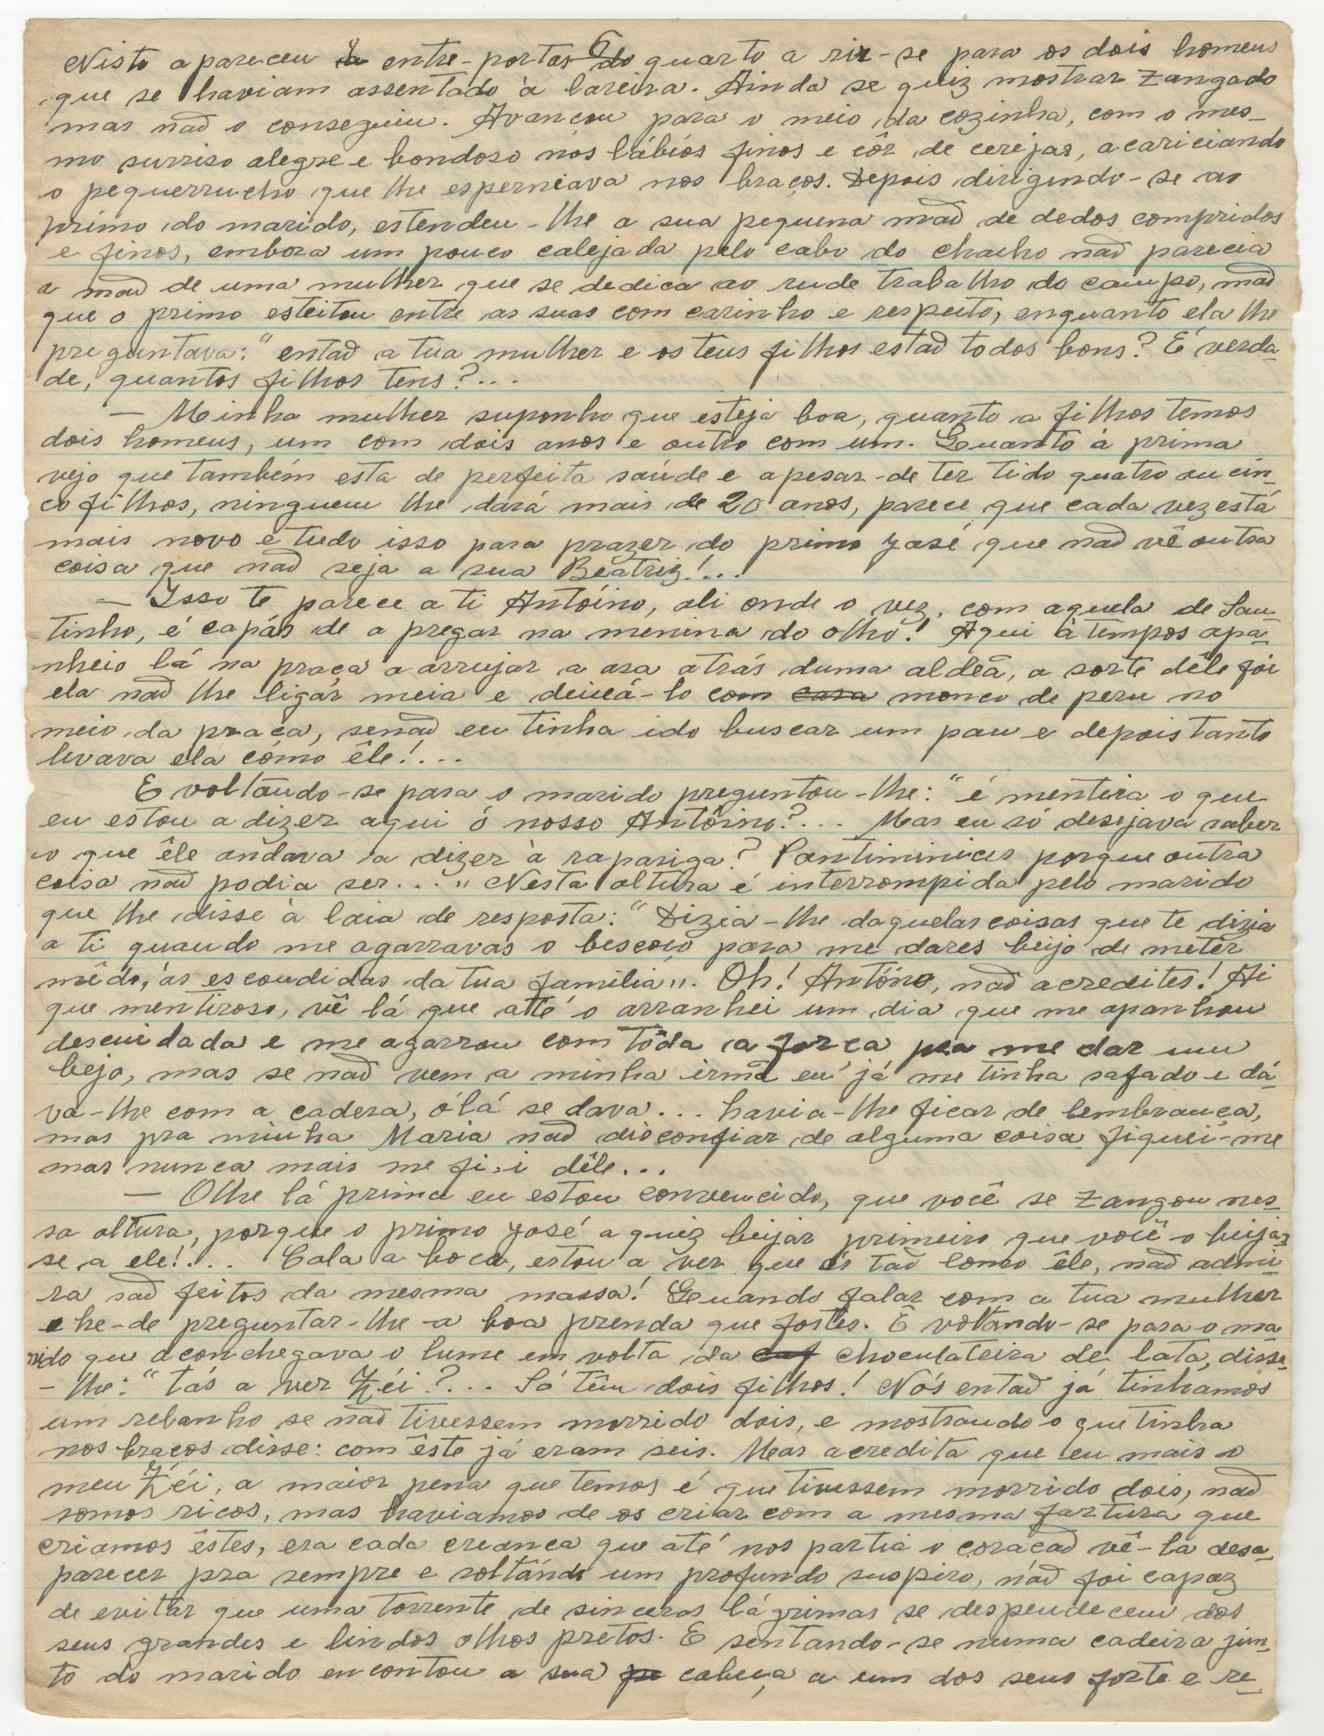 Nisto apareceu a entre-portas do quarto a rir-se para os dois homens
6
que se haviam assentado à lareira. Ainda se quiz mostrar zangado
mas não o conseguiu. Avançou para o meio da cozinha, com o mes-
mo surriso alegre e bondoso nos lábiós finos e côr de cerejas, acariciando
o pequerrucho que lhe esperneava nos braços. Depois dirigindo-se ao
primo do marido, estendeu-lhe a sua pequena mão de dedos compridos
e finos, embora um pouco calejada pelo cabo do chacho não parecia
a mão de uma mulher que se dedica ao rude trabalho do campo, mão
que o primo esteitou entre as suas com carinho e respeito, enquanto ela lhe
preguntava: "então a tua mulher e os teus filhos estão todos bons? É verda-
de, quantos filhos tens?...
— Minha mulher suponho que esteja boa, quanto a filhos temos
dois homens, um com dois anos e outro com um. Quanto à prima
vejo que também esta de perfeita saúde e apesar-de ter tido quatro ou cin-
co filhos, ninguem lhe dará mais de 20 anos, parece que cada vez está
mais novo e tudo isso para prazer do primo José que não vê outra
coisa que não seja a sua Beátriz!...
— Isso te parece a ti Antóino, ali onde o vez, com aquela de San-
tinho, é capás de a pregar na menina do olho! Aqui à tempos apa-
nheio lá na praça a arrujar a asa atrás duma aldeã, a sorte dêle foi
ela não lhe ligár meia e deixá-lo com casa monco de peru no
meio da praça, senão eu tinha ido buscar um pau e depois tanto
levava ela cómo êle!...
E voltando-se para o marido preguntou-lhe: "é mentira o que
eu estou a dizer aqui ó nosso Antóino?... Mas eu só desejava saber
o que êle andava a dizer à rapariga? Pantiminices porque outra
coisa não podia ser..." Nesta altura é interrompida pelo marido
que lhe disse à laia de resposta: "Dizia-lhe daquelas coisas que te dizia
a ti quando me agarravas o bescoço para me dares beijo de metêr
mêdo, às escondidas da tua familia". Oh! Antóno, não acredites! Ai
que mentiroso, vê lá que atté o arranhei um dia que me apanhou
descuidada e me agarrou com tôda a força pra me dar um
bejo, mas se não vem a minha irmã eu já me tinha safado e dá-
va-lhe com a cadera, ólá se dava... havia-lhe ficar de lembrança,
mas pra minha Maria não disconfiar de alguma coisa fiquei-me
mas nunca mais me fiei dêle...
— Olhe lá prima eu estou convencido, que você se zangou nes-
sa altura, porque o primo José a quiz beijar primeiro que você o beijas-
se a ele!... Cala a boca, estou a ver que és tão como êle, não admi-
ra são feitos da mesma massa! Quando falar com a tua mulher
hé-de preguntar-lhe a boa prenda que fostes. E voltando-se para o ma-
rido que aconchegava o lume em volta da caf choculateira de lata, disse-
-lhe: "tás a ver Zéi?... Só têm dois filhos! Nós então já tinhamos
um rebanho se não tivessem morrido dois, e mostrando o que tinha
nos braços disse: com êste já eram seis. Mas acredita que eu mais o
meu Zéi, a maior pena que temos é que tivessem morrido dois, não
somos ricos, mas haviamos de os criar com a mesma fartura que
criamos êstes, era cada creança que até nos partia o coração vê-la desa-
parecer pra sempre e soltando um profundo suspiro, não foi capaz
de evitar que uma torrente de sinceras lágrimas se despendecem dos
seus grandes e lindos olhos pretos. E sentando-se numa cadeira jun-
to do marido encontou a sua pe cabeça a um dos seus forte e re-